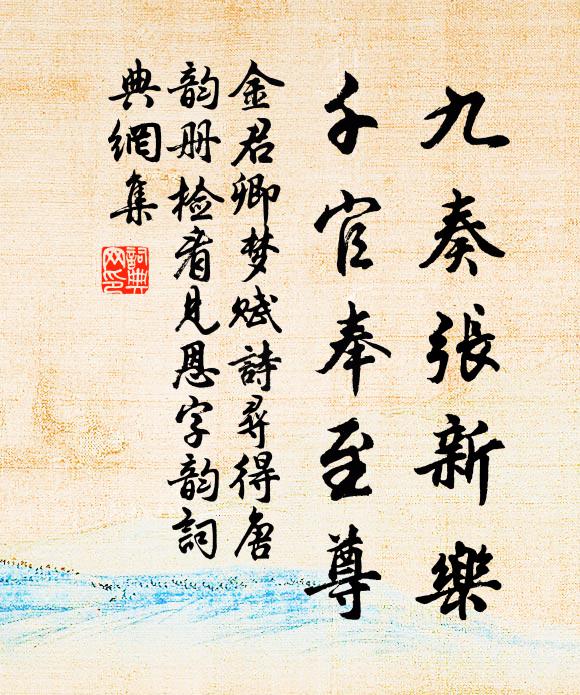 九奏張新樂
千官奉至尊
金君卿梦赋詩尋得唐
韵册检看見恩字韵詞
典網集
詞典
网印